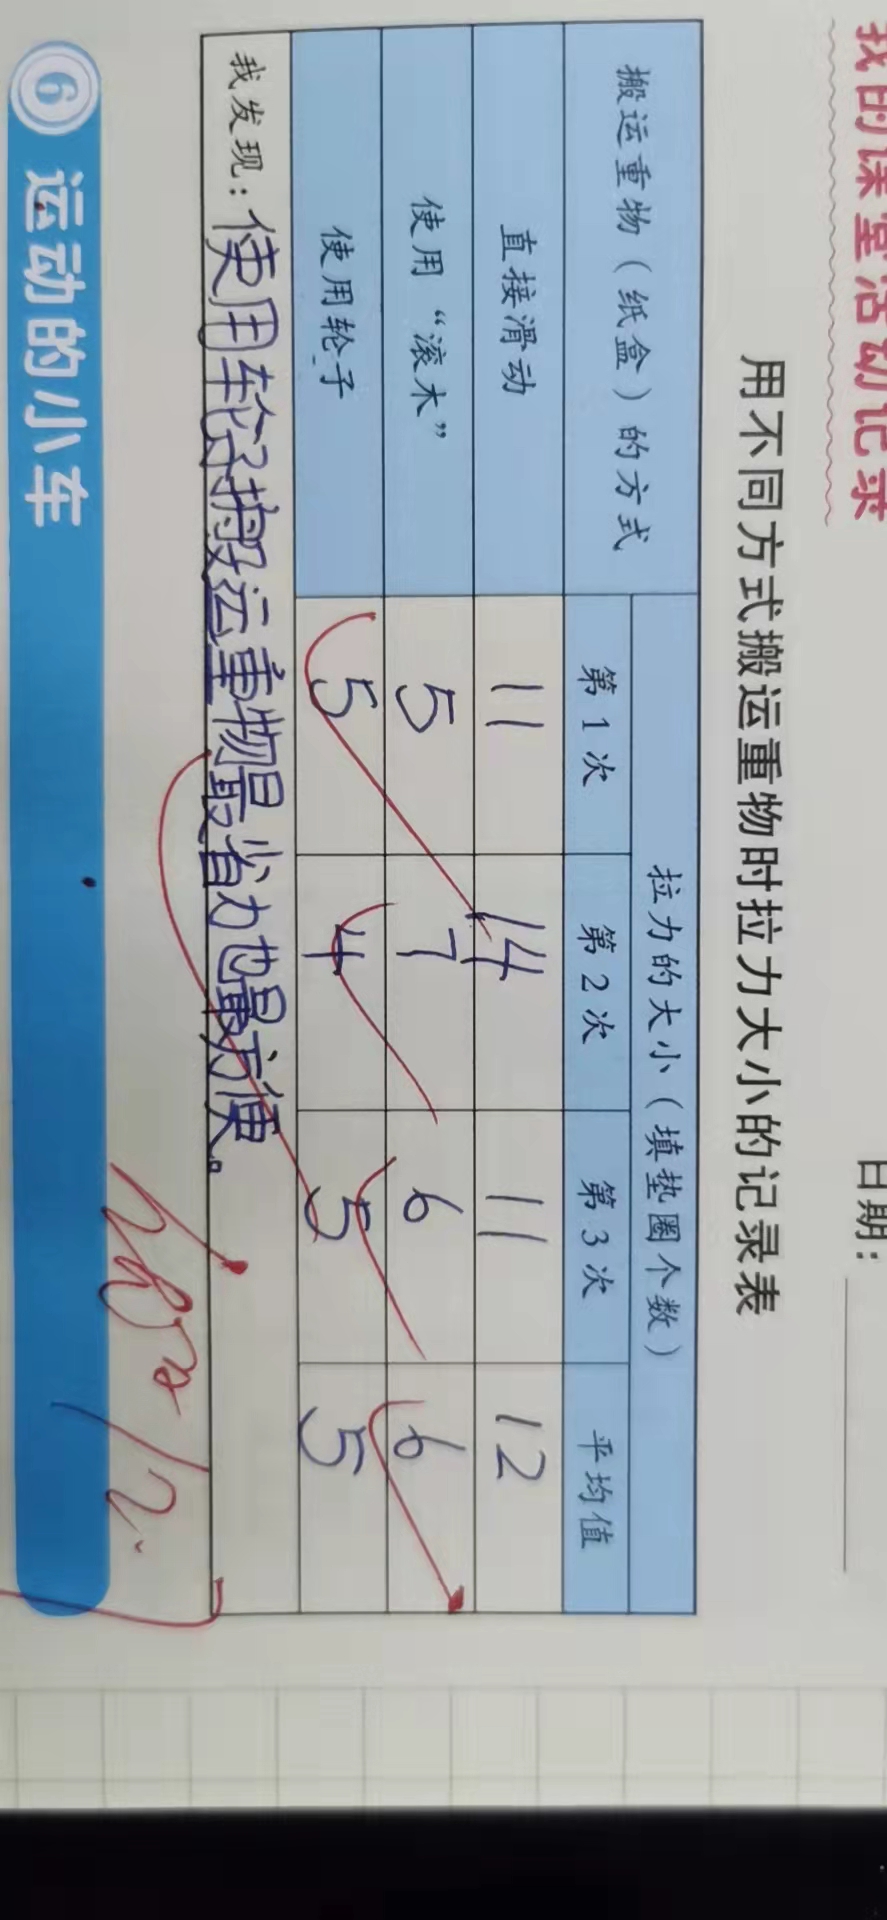 我的课堂活动记录
日期：
用不同方式搬运重物时拉力大小的记录表
搬运重物（纸盒）的方式 拉力的大小（填垫圈个数）
第1次 第2次 第3次 平均值
直接滑动 11 14 11 12
使用“滚木” 5 7 6 6
使用轮子 5 4 5 5
我发现：使用轮子搬运重物最省力也最方便。
6 运动的小车